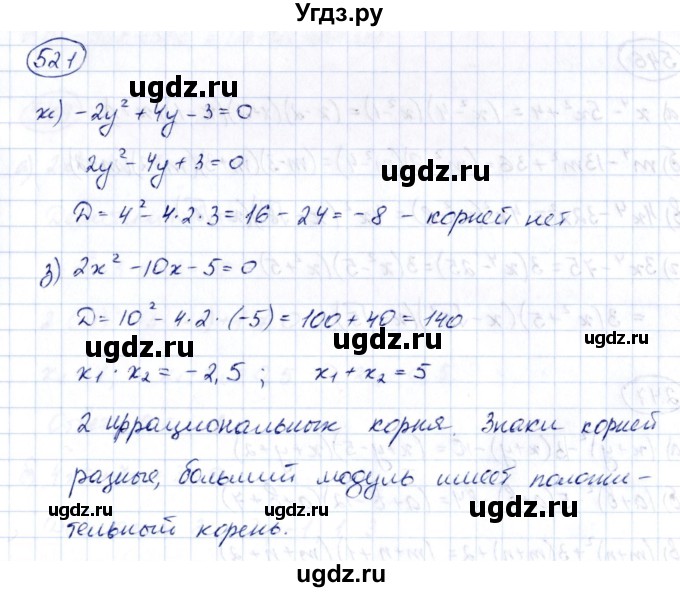 Угдз.ру
521
ugdz.ru ugdz.ru
ж) -2y² + 4y - 3 = 0
2y² - 4y + 3 = 0
ugdz.ru
D = 4² - 4·2·3 = 16 - 24 = -8 - корней нет
з) 2x² - 10x - 5 = 0
D = 10² - 4·2·(-5) = 100 + 40 = 140
ugdz.ru ugdz.ru
x₁ · x₂ = -2,5 ; x₁ + x₂ = 5
2 иррациональных корня. Знаки корней
разные, больший модуль имеет положи-
ugdz.ru ugdz.ru ugdz.ru
тельный корень.
ugdz.ru